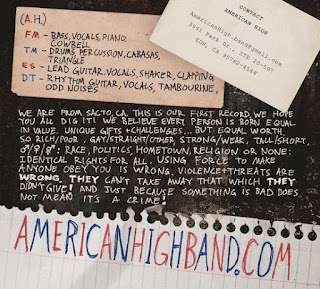 (A.H.)
FM - BASS, VOCALS, PIANO,
COWBELL
TM - DRUMS, PERCUSSION, CABASAS,
TRIANGLE
ES - LEAD GUITAR, VOCALS, SHAKER, CLAPPING
DT - RHYTHM GUITAR, VOCALS, TAMBOURINE,
ODD NOISES
CONTACT
AMERICAN HIGH
AmericanHigh.band@gmail.com
3941 Park Dr., STE 20-507
EDH, CA 95762-4549
WE ARE FROM SACTO, CA. THIS IS OUR FIRST RECORD. WE HOPE
YOU ALL DIG IT! WE BELIEVE EVERY PERSON IS BORN EQUAL
IN VALUE. UNIQUE GIFTS + CHALLENGES... BUT EQUAL WORTH.
SO RICH/POOR - GAY/STRAIGHT/OTHER, STRONG/WEAK, TALL/SHORT,
♂/♀/⚥; RACE, POLITICS, HOMETOWN, RELIGION OR NONE:
IDENTICAL RIGHTS FOR ALL. USING FORCE TO MAKE
ANYONE OBEY YOU IS WRONG. VIOLENCE + THREATS ARE
WRONG. THEY CAN'T TAKE AWAY THAT WHICH THEY
DIDN'T GIVE! AND JUST BECAUSE SOMETHING IS BAD DOES
NOT MEAN IT'S A CRIME!
AMERICANHIGHBAND.COM